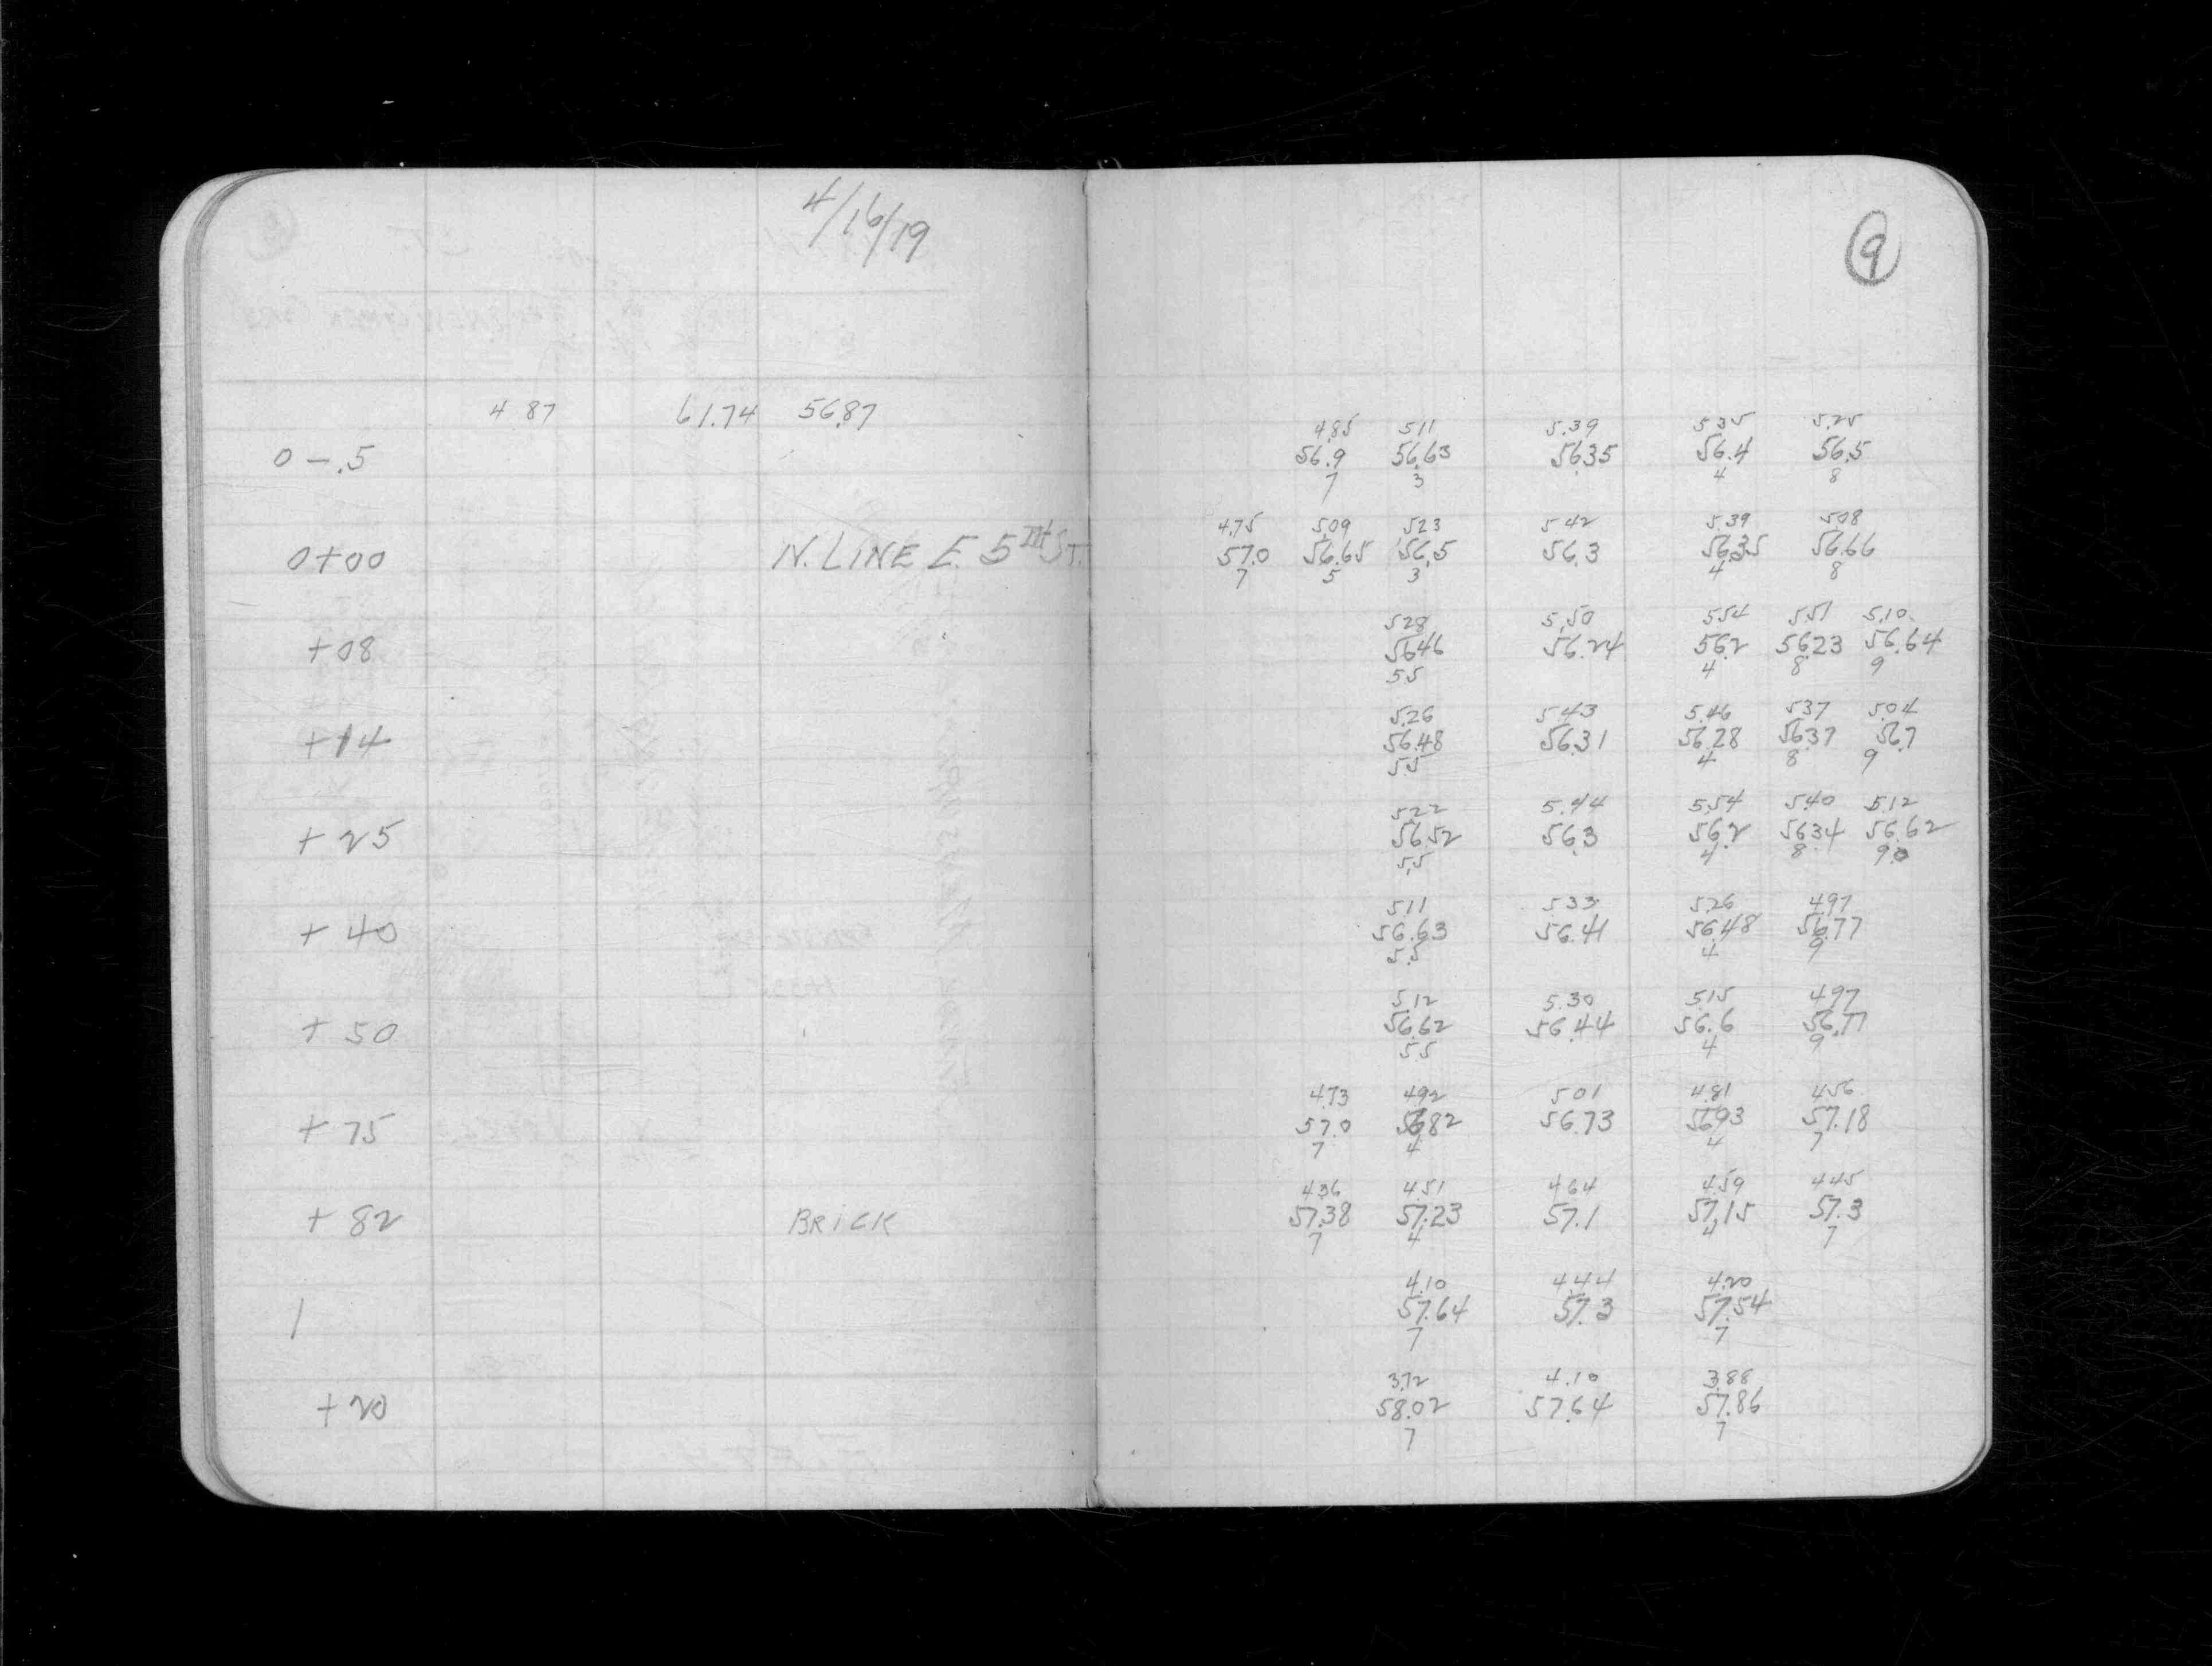 4/16/19
9
4 87 61.74 56.87
4.85 511 5.39 535 5.25
0 - .5 56.9 56.63 56.35 56.4 56.5
7 3 4 8
4.75 5.09 523 5 42 5.39 5.08
0+00 N. LINE E. 5TH ST. 57.0 56.65 56.5 56.3 56.35 56.66
7 5 3 4 8
528 5.50 554 551 5.10
+08 56.46 56.24 56.2 56.23 56.64
5.5 4 8 9
5.26 543 5.46 537 5.04
+14 56.48 56.31 56.28 56.37 56.7
5.5 4 8 9
5.22 5.44 5.54 5.40 5.12
+ 25 56.52 56.3 56.2 56.34 56.62
5.5 4 8 9.0
511 533 5.26 497
+ 40 56.63 56.41 56.48 56.77
5.5 4 9
5.12 5.30 515 497
+ 50 56.62 56.44 56.6 56.77
5.5 4 9
4.73 492 501 4.81 4.56
+ 75 57.0 56.82 56.73 56.93 57.18
7 4 4 7
4.36 4.51 464 4.59 445
+ 82 BRICK 57.38 57.23 57.1 57.15 57.3
7 4 4 7
4.10 4.44 4.20
1 57.64 57.3 57.54
7 7
3.72 4.10 3.88
+ 20 58.02 57.64 57.86
7 7